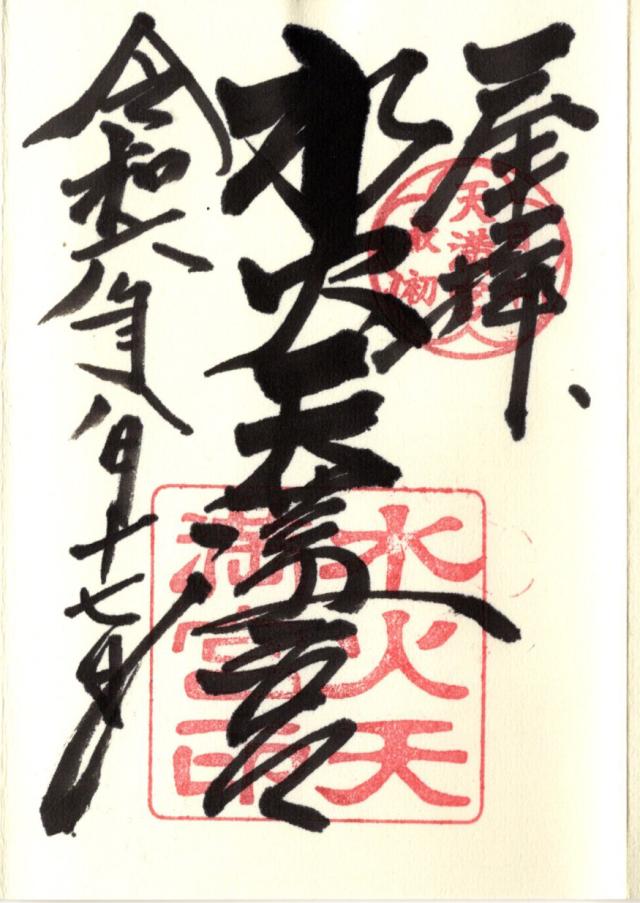 拝
水火天満宮
令和六年八月十七日
天満宮
最初
水火天
満宮印